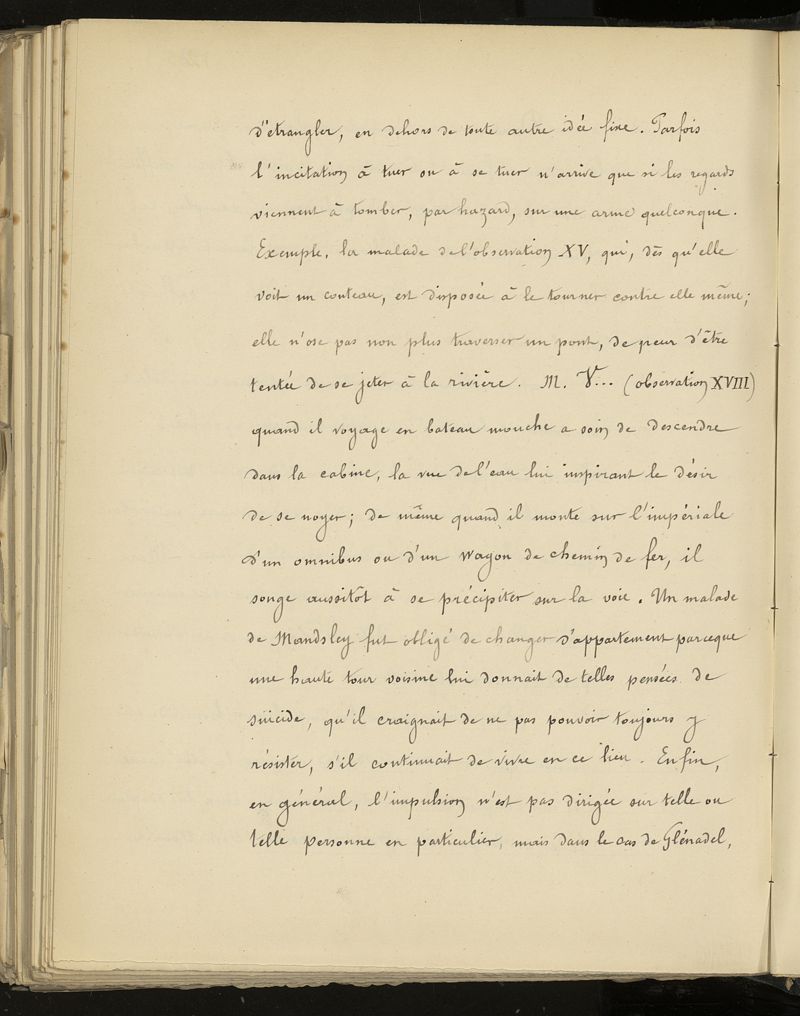 d'étrangler, en dehors de toute autre idée fixe. Parfois
l'incitation à tuer ou à se tuer n'arrive que si les regards
viennent à tomber, par hazard, sur une arme quelconque.
Exemple, la malade de l'observation XV, qui, dès qu'elle
voit un couteau, est disposée à le tourner contre elle même;
elle n'ose pas non plus traverser un pont, de peur d'être
tentée de se jeter à la rivière. M. V... (observation XVIII)
quand il voyage en bateau mouche a soin de descendre
dans la cabine, la vue de l'eau lui inspirant le désir
de se noyer; de même quand il monte sur l'impériale
d'un omnibus ou d'un wagon de chemin de fer, il
songe aussitôt à se précipiter sur la voie. Un malade
de Mandsley fut obligé de changer d'appartement parceque
une haute tour voisine lui donnait de telles pensées de
suicide, qu'il craignait de ne pas pouvoir toujours y
résister, s'il continuait de vivre en ce lieu. Enfin,
en général, l'impulsion n'est pas dirigée sur telle ou
telle personne en particulier, mais dans le cas de Glénadel,